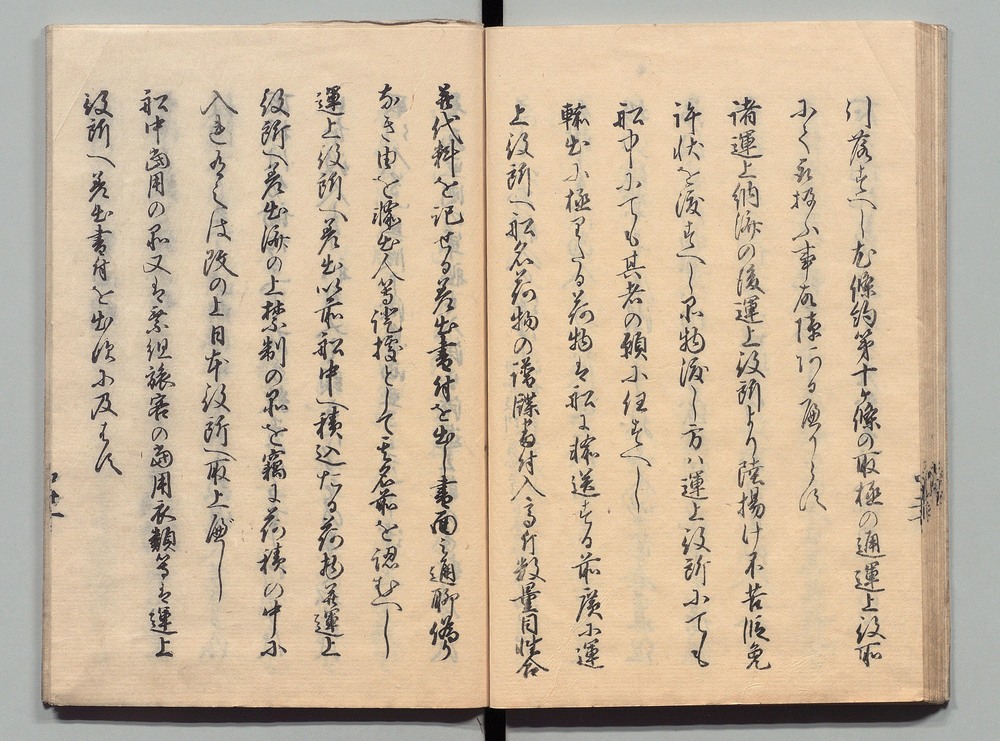 引落すへし尤條約第十ケ條の取極の通運上役所
にて取扱ふ事故障ある間しく候
諸運上納済の後運上役所より陸揚け不苦候免
許状を渡すへし品物渡し方ハ運上役所にても
船中にても其者の願に任すへし
輸出に極りたる荷物は船に積送する前広に運
上役所へ船名荷物の番牒書付入高斤数量目性合
并代料を記せる差出書付を出し書面之通聊偽り
なき由を操出人等證據として其名前を認むへし
運上役所へ差出以前船中へ積込たる荷物并運上
役所へ差出済の上禁制の品を竊に荷積の中に
入置るゝは改の上日本役所へ取上へし
船中当用の品又は乗組旅客の当用衣類等は運上
役所へ差出書付を出候に及はす